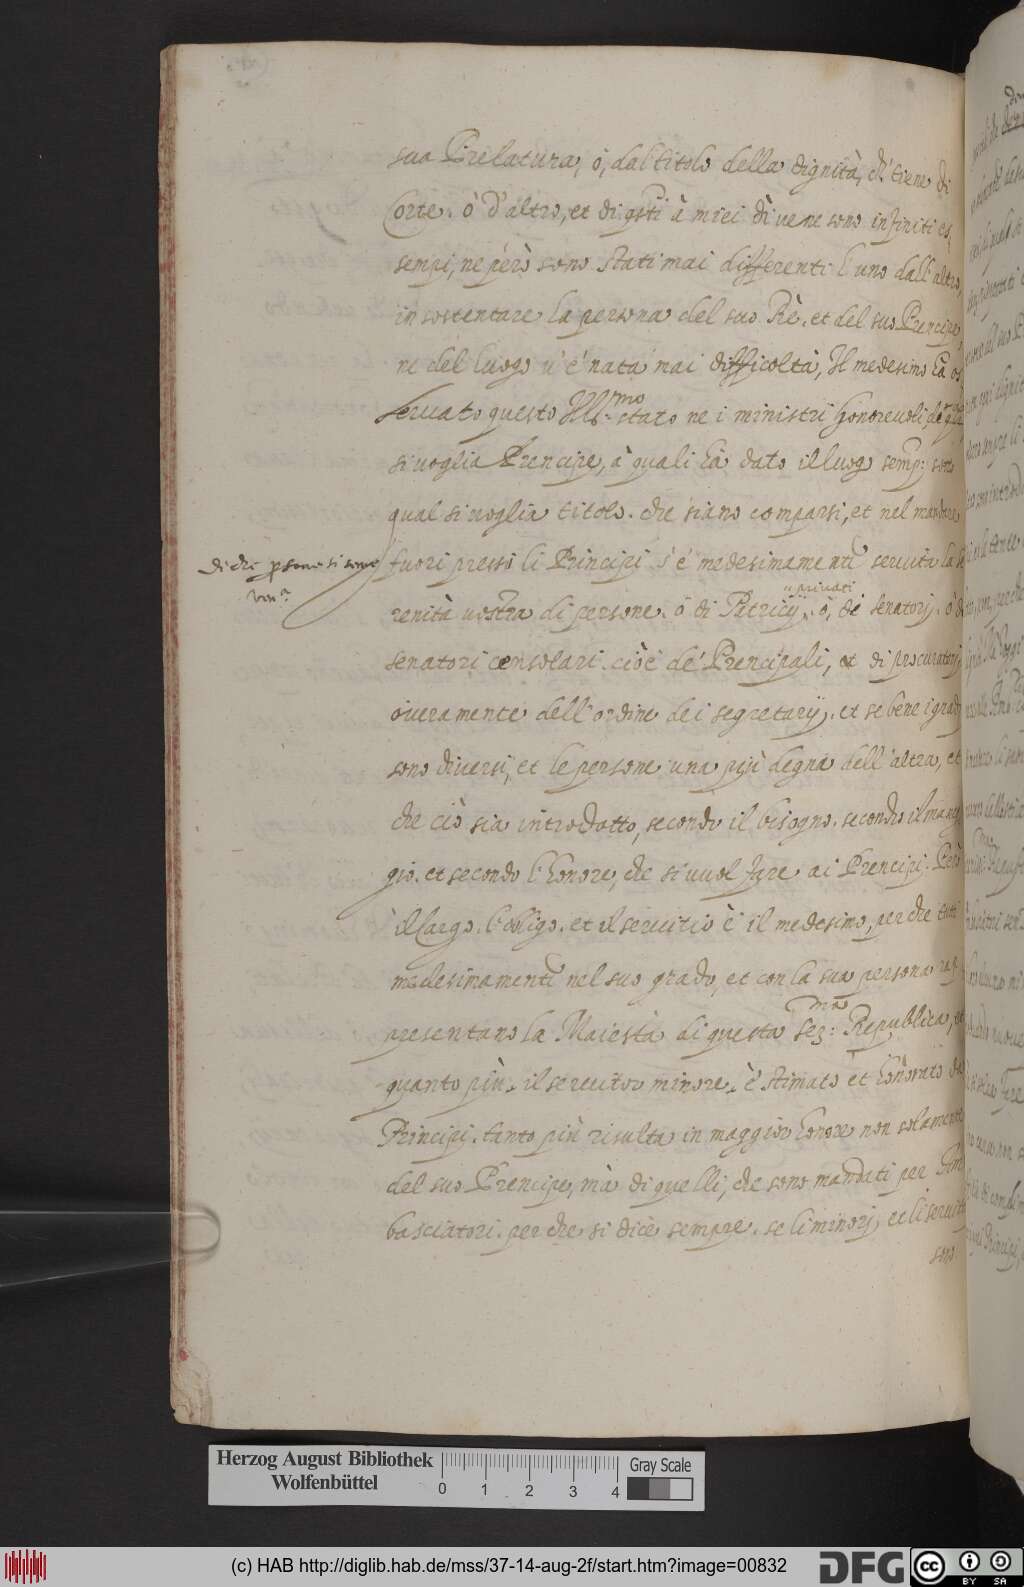 sua Prelatura, ò, dal titolo della dignità, ch'tiene di
Corte. ò d'altro, et di qsti à miei dì ve ne sono infiniti es,
sempi, ne però sono stati mai differenti l'uno dall'altro,
in sostentare la persona del suo Rè. et del suo Prencipe,
ne del luogo u'è nata mai difficoltà, Il medesimo hà os,
servato questo Ills.mo stato ne i ministri honorevoli, de
si voglia Prencipe, à quali hà dato il luogo semp: sotto
qual si voglia titolo. che siano comparsi, et nel mandare
Di che psone si serve
Ven.a
fuori presso li Principi s'è medesimamente servita la Se
renità vostra di persone. ò di Patricij, ò privati, ò, de senatorj. ò di
senatori consolari. cioè de' Prencipali, et di procuratorj,
overamente dell'ordine dei segretarij. et se bene i gradi
sono diversi, et le persone una più degna dell'altra, et
che ciò sia introdotto, secondo il bisogno. secondo il maneg
gio. et secondo l'honore, che si vuol fare ai Prencipi: Però
il Cargo. l'obligo. et il servitio è il medesimo, perche tutti
medesimamente nel suo grado, et con la sua persona rap
presentano la Maiestà di questa Ser:ma Republica, et
quanto più, il servitor minore, è stimato et honorato da
Principi. tanto più risulta in maggior honore non solamente
del suo Prencipe, mà di quelli, che sono mandati per Am
basciatori. perche si dice sempre. se li minorj, et li servitori
sono
Herzog August Bibliothek
Wolfenbüttel
0 1 2 3 4
Gray Scale
(c) HAB http://diglib.hab.de/mss/37-14-aug-2f/start.htm?image=00832
DFG
cc BY SA